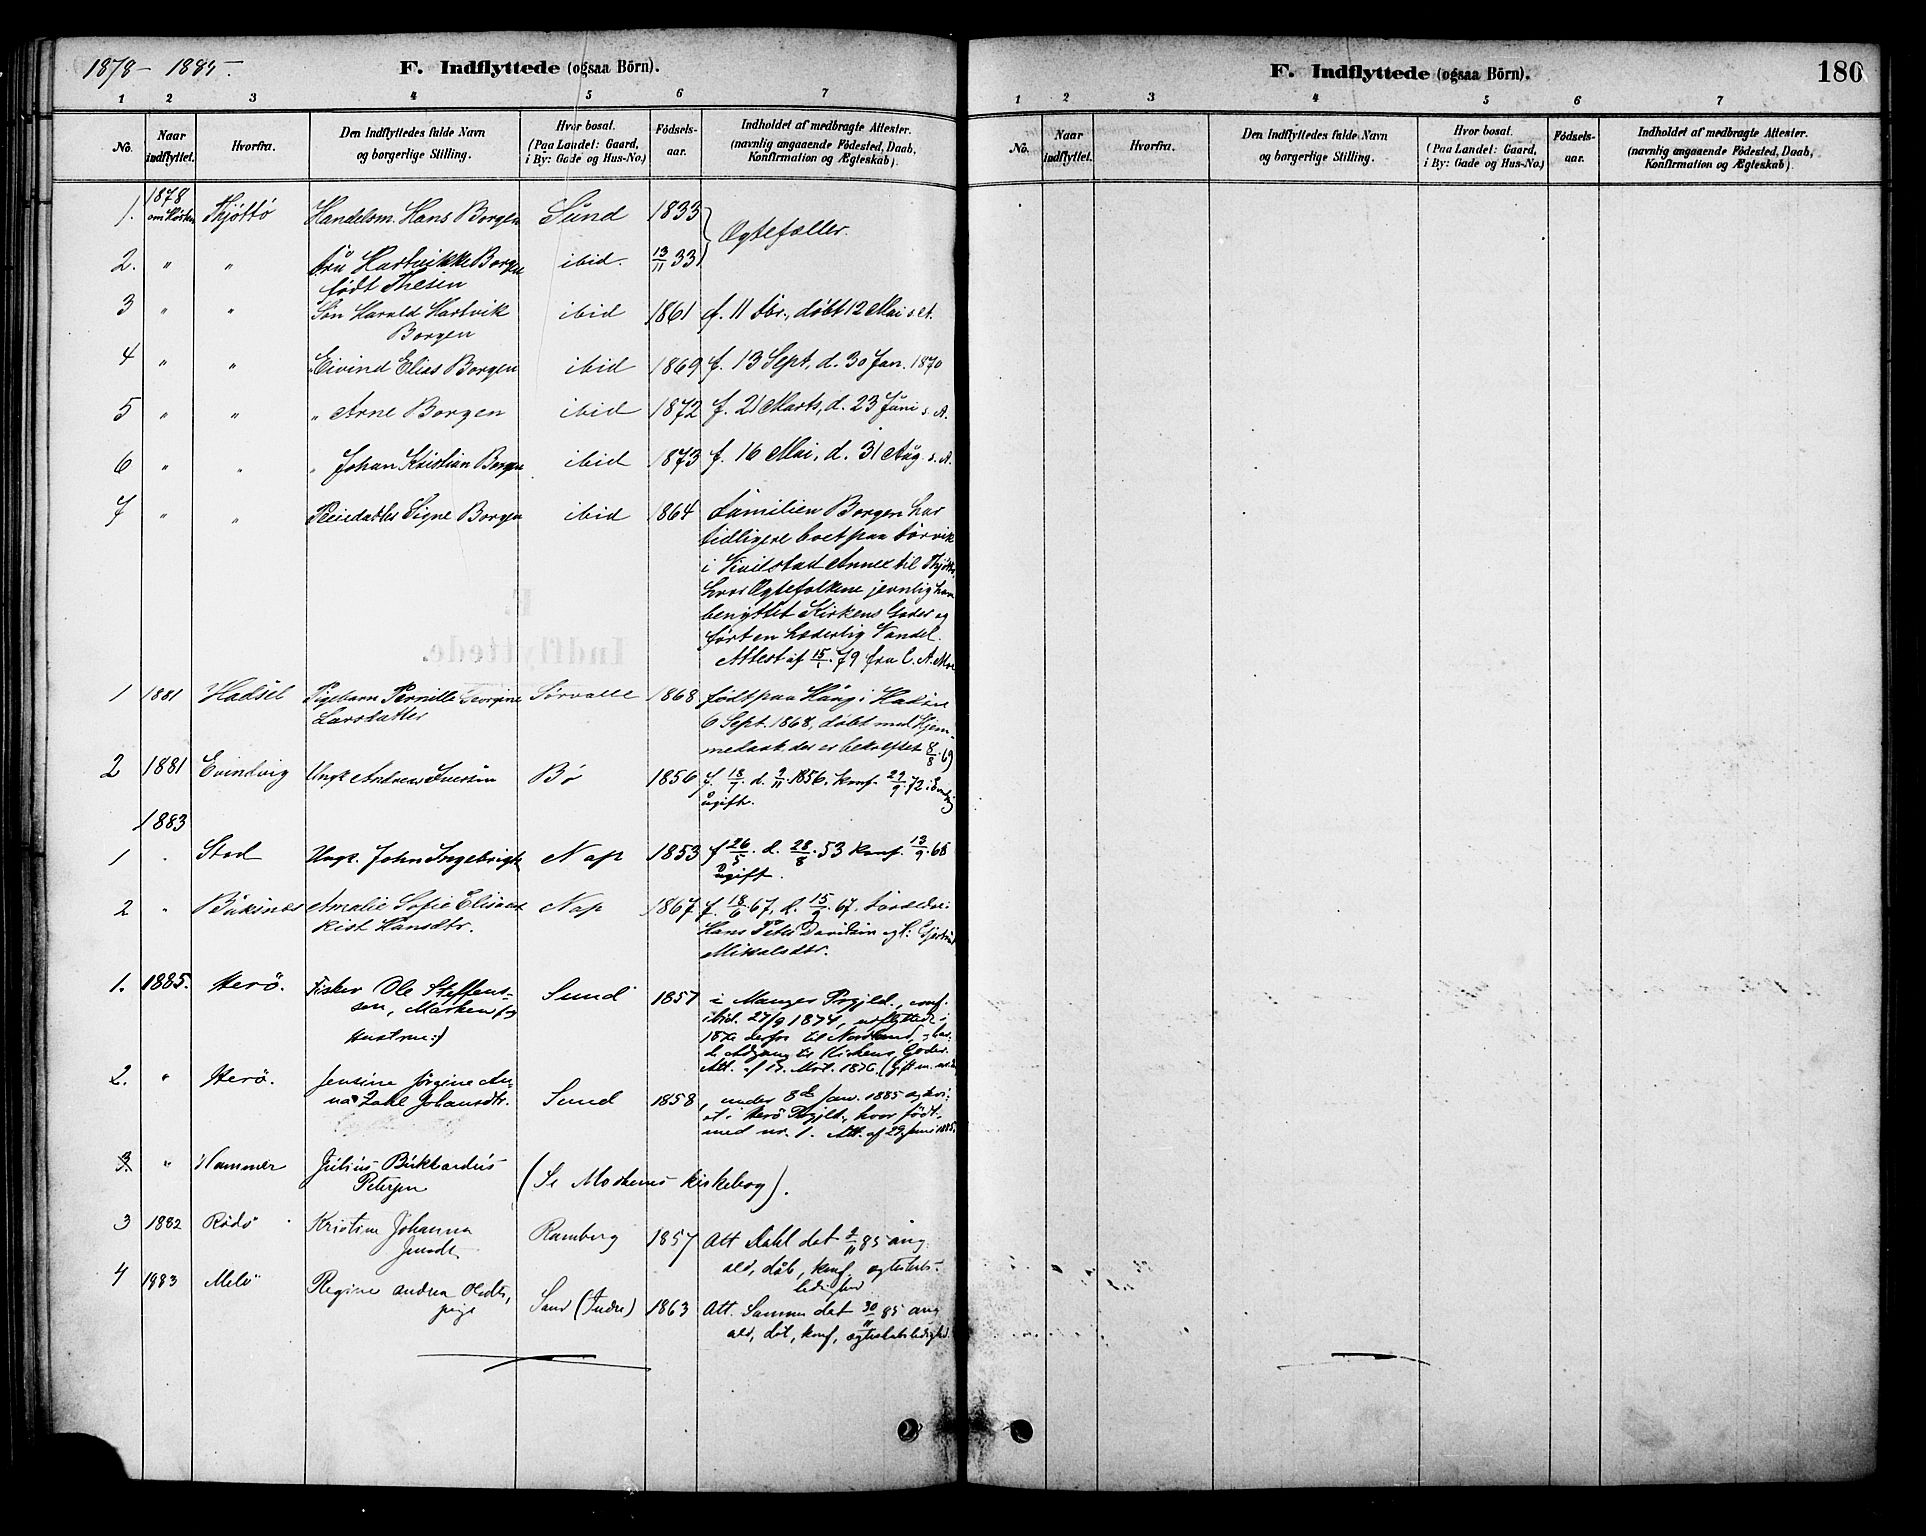 1878 - 1885.
F. Indflyttede (ogsaa Börn).
1 2 3 4 5 6 7
No. Naar indflyttet. Hvorfra. Den Indflyttedes fulde Navn og borgerlige Stilling. Hvor bosat. (Paa Landet: Gaard, i By: Gade og Hus-No.) Födsels-aar. Indholdet af medbragte Attester. (navnlig angaaende Födested, Daab, Konfirmation og Ægteskab).
1. 1878 om Høsten Thjöttö Handelsm. Hans Borgen Sund 1833 Ægtefæller.
2. " " Fru Hartvikke Borgen ibid. 13/11 33
født Thesen
3 " " Søn Harald Hartvik ibid 1861 f. 11 Fbr., døbt 12 Mai s. A.
Borgen
4 " " " Eivind Elias Borgen ibid 1869 f. 13 Sept, d. 30 Jan. 1870
5 " " " Arne Borgen ibid 1872 f. 21 Marts, d. 23 Juni s. A.
6 " " " Johan Kristian Borgen ibid 1873 f. 16 Mai, d. 31 Aug. s. A.
7 " " Pleiedatter Signe Borgen ibid 1864 Familien Borgen har
tidligere boet paa Forvik
i Vivelstad Annex til Thjöttö,
hvor Ægtefolkene jevnlig have
benyttet Kirkens Goder og
ført en hæderlig Vandel.
Attest af 15/1 79 fra C. A. Moe
1 1881 Hadsel Pigebarn Pernille Georgine Sørvaae 1868 født paa Haug i Hadsel
Larsdatter 6 Sept. 1868, døbt med Hjem-
medaab der er bekræftet 8/8 69
2 1881 Evindvig Ungk. Andreas Iversen Bø 1856 f. 18/9. d. 9/11 1856, konf. 29/9. 72 i Evindvig
ugift.
1883
1 " Stod Ungk. John Ingebrigts Nap 1853 f. 26/5. d. 28/8. 53 konf. 13/9. 68
ugift.
2 " Buksnes Amalie Sofie Elisabet Nap 1867 f. 18/6. 67, d. 15/9. 67. Forældre:
Kist Hansdtr. Hans Peter Davidsen og H: Gjertrud
Mikalsdtr.
1. 1885. Herö. Fisker Ole Steffens- Sund 1857 i Manger Prgjld., conf.
sen, Marken f. og ibid. 27/9 1874, udflyttede i
Hustrue:) 1876 derfra til Nordland, og hav-
de Adgang til Kirkens Goder.
Att. af 13. Mrt. 1876. (Gift m. nr. 2)
2. " Herö. Jensine Jørgine An- Sund 1858 , under 8de Jan. 1885 ægtevi-
na Zahl Johansdtr. et i Herö Prgjld., hvor født,
med nr. 1. Att. af 29 Juni 1885.
3. " Hammer Julius Bukhardus (Se Modums kirkebog).
Petersen
3 1882 Rödö Kristine Johanna Ramberg 1857 Att Dahl dat 2/11 85 ang.
Jensdt. ald, dåb, konf, ægteskabs-
ledighed
4 1883 Melö Regine Andrea Olsdtr, Sand (Indre) 1863 Att. Samme dat 30/11 85 ang
pige ald, dåb, konf, ægteskabsledighed.
F. Indflyttede (ogsaa Börn). 180
1 2 3 4 5 6 7
No. Naar indflyttet. Hvorfra. Den Indflyttedes fulde Navn og borgerlige Stilling. Hvor bosat. (Paa Landet: Gaard, i By: Gade og Hus-No.) Födsels-aar. Indholdet af medbragte Attester. (navnlig angaaende Födested, Daab, Konfirmation og Ægteskab).